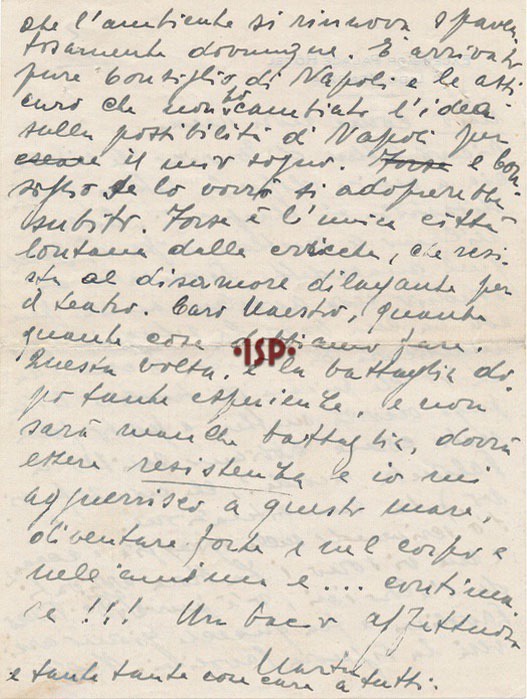 che l'ambiente si rinnova spaven
tosamente dovunque. È arrivato
pure Consiglio, di Napoli e le assi
curo che non ho cambiato l'idea
sulla possibilità di Napoli per
creare il mio sogno. Forse e Con
siglio se lo vorrà si adopererebbe
subito. Forse è l'unica città
lontana dalle cricche, che resi-
ste al disamore dilagante per
il teatro. Caro Maestro, quante
quante cose dobbiamo fare.
·ISP·
Questa volta, è la battaglia do
po tante esperienze, e non
sarà manche battaglia, dovrà
essere resistenza e io mi
agguerrisco a questo mare,
diventare forte e nel corpo e
nell'anima e ... continua
re!!! Un bacio affettuoso
Marta
e tante tante cose care a tutti.